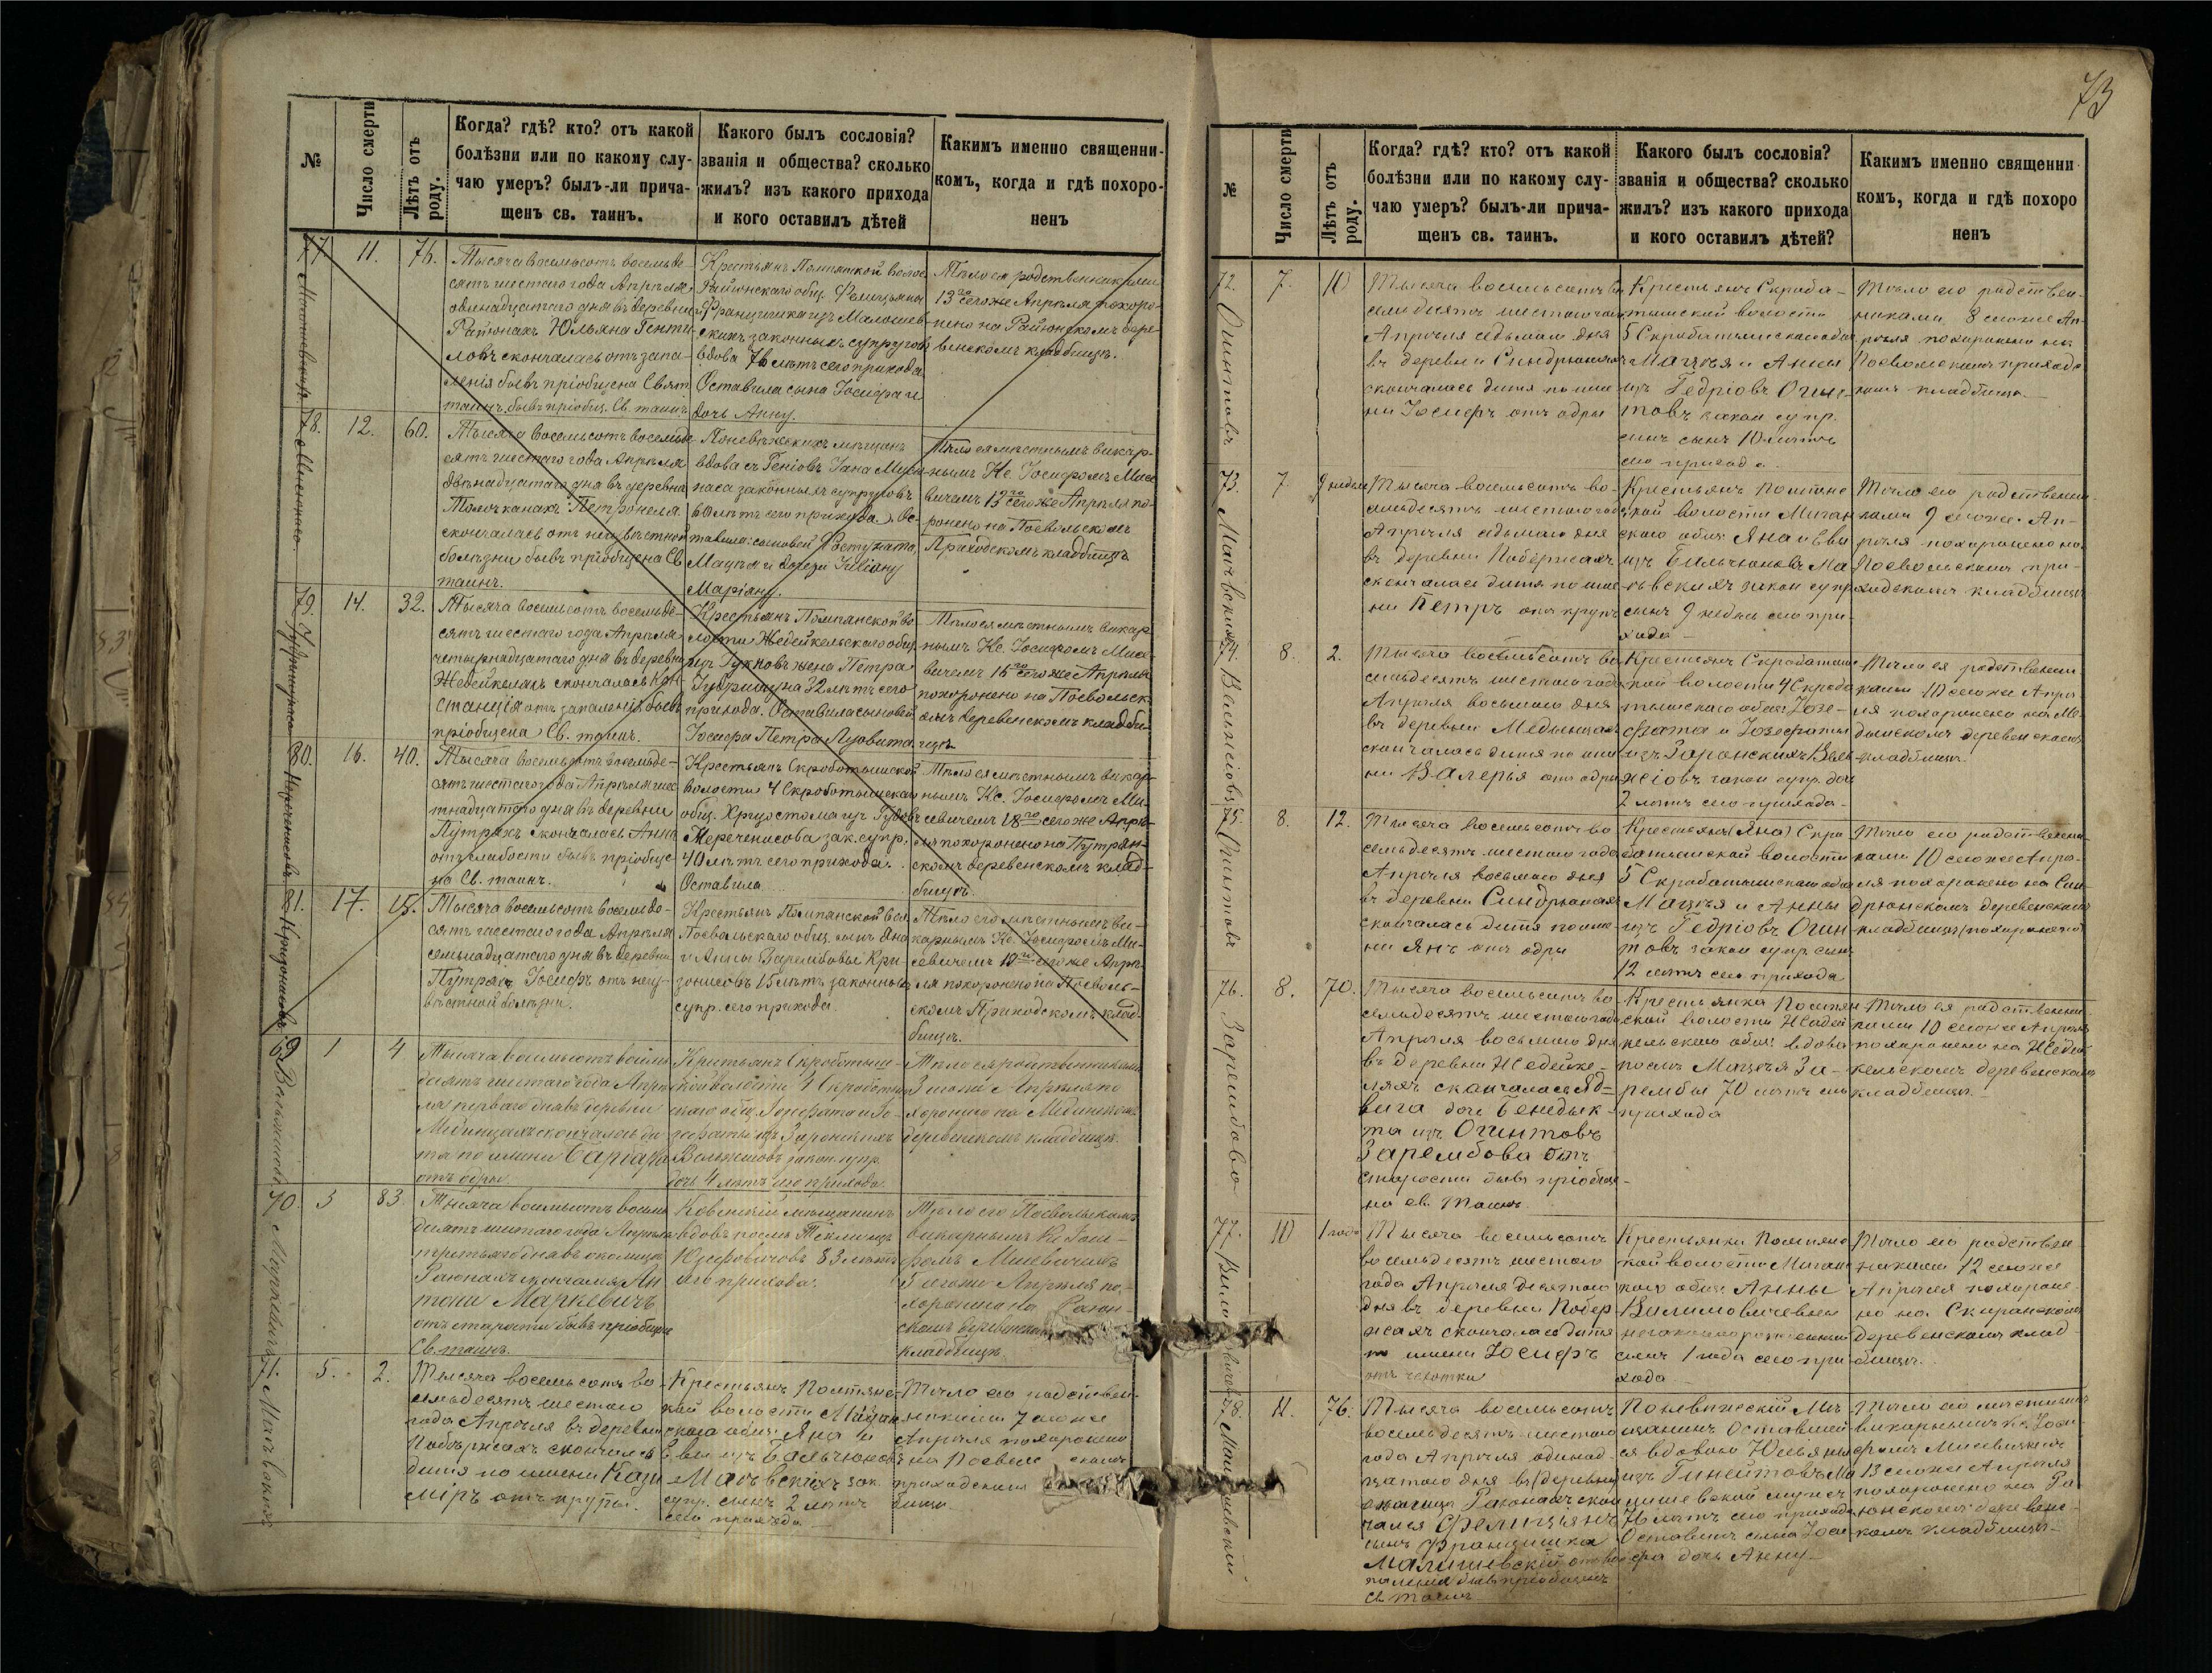 73
№
Число смерти
Лѣтъ отъ роду.
Когда? гдѣ? кто? отъ какой
болѣзни или по какому слу-
чаю умеръ? былъ-ли прича-
щенъ св. таинъ.
Какого былъ сословія?
званія и общества? сколько
жилъ? изъ какого прихода
и кого оставилъ дѣтей
Какимъ именно священни-
комъ, когда и гдѣ похоро-
ненъ
77.
11.
76.
Тысяча восемьсотъ восемьде-
сятъ шестаго года Апрѣля
одинадцатаго дня въ деревни
Раіюнахъ Юльяна Гинти-
ловъ скончалась отъ запа-
ленія бывъ пріобщена Свят.
таинъ. бывъ пріобщ. Св. таинъ
Крестьянъ Помпянской волос.
Раіюнскаго общ. Фелиціяна
Францишка изъ Малышев-
скихъ законныхъ супруговъ
вдова 76 лѣтъ сего прихода
Оставила сына Іосифа и
дочь Анну.
Тѣло ея родственниками
13го сегоже Апрѣля похоро-
нено на Раіюнскомъ дере-
венскомъ кладбищѣ.
78.
12.
60.
Тысяча восемьсотъ восемьде-
сятъ шестаго года Апрѣля
двѣнадцатаго дня въ деревни
Толочканахъ Петронеля
скончалась отъ неизвѣстной
болѣзни бывъ пріобщена Св.
таинъ.
Поневѣжскихъ мѣщанъ
вдова съ Геніовъ Іана Мисю-
наса законныхъ супруговъ
60 лѣтъ сего прихода. Ос-
тавила: сыновей Фастуната,
Мацѣя и дочери Iuliану
Маріяну.
Тѣло ея мѣстнымъ викар-
нымъ Кс. Іосифомъ Мисе-
вичемъ 13го сегоже Апрѣля по-
ронено на Поевольскомъ
Приходскомъ кладбищѣ
79.
14.
32.
Тысяча восемьсотъ восемьде-
сятъ шестаго года Апрѣля
четырнадцатаго дня въ деревни
Жедейкеляхъ скончалась Кон-
станція отъ запаленія бывъ
пріобщена Св. таинъ.
Крестьянъ Помпянской во-
лости Жедейкельскаго общ.
изъ Гукновъ жена Петра
32 лѣтъ сего
прихода. Оставила сыновей
Іосифа Петра Людовика
Тѣло ея мѣстнымъ викар-
нымъ Кс. Іосифомъ Мисе-
вичемъ 16го сегоже Апрѣля
похоронено на Поевольск-
омъ деревенскомъ кладби-
щѣ
80.
16.
40.
Тысяча восемьсотъ восемьде-
сятъ шестаго года Апрѣля шес-
тнадцатаго дня въ деревни
Путряхъ скончалась Анна
отъ слабости бывъ пріобще-
на Св. таинъ.
Крестьянъ Скроботышской
волости 4 Скроботышскаго
общ. Хризостома изъ Гудовъ
Мереченисова зак. супр.
40 лѣтъ сего прихода.
Оставила
Тѣло ея мѣстнымъ викар-
нымъ Кс. Іосифомъ Ми-
севичемъ 18го сегоже Апрѣ-
ля похоронено на Путрян-
скомъ деревенскомъ клад-
бищѣ.
81.
17.
15.
Тысяча восемьсотъ восемьде-
сятъ шестаго года Апрѣля
семьнадцатаго дня въ деревни
Путряхъ Іосифъ отъ неиз-
вѣстной болѣзни.
Крестьянъ Помпянской вол.
Поевольскаго общ. сынъ Яна
и Анны Зарембовы Кри-
зонисовъ 15 лѣтъ законныхъ
супр. сего прихода.
Тѣло его мѣстнымъ ви-
карнымъ Кс. Іосифомъ Ми-
севичемъ 19го сегоже Апрѣ-
ля похоронено на Поеволь-
скомъ Приходскомъ клад-
бищѣ.
69
1
4
Тысяча восемьсотъ восемь-
десятъ шестаго года Апрѣ-
ля перваго дня въ деревни
Мединцахъ скончалась ди-
тя по имени Барбара
отъ одры
Крестьянъ Скроботыш-
ской волости 4 Скроботыш-
скаго общ. Іозефата и Іо-
зефаты изъ Заронскихъ
закон. супр.
дочь 4 лѣтъ сего прихода
Тѣло ея родственниками
3 сегоже Апрѣля по-
хоронено на Мединскомъ
деревенскомъ кладбищѣ.
70.
3
83.
Тысяча восемьсотъ восемь-
десятъ шестаго года Апрѣля
третьяго дня въ околицѣ
Раюнахъ скончался Ан-
тони Маркевичъ
отъ старости бывъ пріобщенъ
Св. таинъ.
Ковенскій мѣщанинъ
вдовъ послѣ Теклы изъ
Юзефовичовъ 83 лѣтъ
сего прихода.
Тѣло его Поевольскимъ
викарнымъ Кс. Іоси-
фомъ Мисевичемъ
5 сегоже Апрѣля по-
хоронено на Раюн-
скомъ деревенскомъ
кладбищѣ.
71.
5.
2.
Тысяча восемьсотъ во-
семьдесятъ шестаго
года Апрѣля въ деревни
Побѣржахъ скончалось
дитя по имени Кази-
міръ отъ крупы.
Крестьянъ Помпянс-
кой волости
скаго общ. Яна и
Евы изъ Бальчюновъ
зак.
супр. сынъ 2 лѣтъ
сего прихода
Тѣло его родствен-
никами 7 сегоже
Апрѣля похоронено
на Поевольскомъ
приходскомъ
бищѣ.
№
Число смерти
Лѣтъ отъ роду.
Когда? гдѣ? кто? отъ какой
болѣзни или по какому слу-
чаю умеръ? былъ-ли прича-
щенъ св. таинъ.
Какого былъ сословія?
званія и общества? сколько
жилъ? изъ какого прихода
и кого оставилъ дѣтей?
Какимъ именно священни
комъ, когда и гдѣ похоро
ненъ
72.
7.
10
Тысяча восемьсотъ во-
семьдесятъ шестаго года
Апрѣля седьмаго дня
въ деревни Синдрюнахъ
скончалась дитя по име-
ни Іосифъ отъ одры
Крестьянъ Скраба-
тышской волости
5 Скрабатышскаго общ.
Мацѣя и Анны
изъ Гедріовъ Огин-
товъ закон супр.
синъ сынъ 10 лѣтъ
сего прихода.
Тѣло его родствен-
никами 8 сегоже Ап-
рѣля похоронено на
Поевольскомъ приход-
комъ кладбищѣ.
73.
7
9 недель
Тысяча восемьсотъ во-
семьдесятъ шестаго года
Апрѣля седьмаго дня
въ деревни Побержахъ
скончалась дитя по име-
ни Петръ отъ крупы
Крестьянъ Помпянс-
кой волости
скаго общ: Яна и Евы
изъ Бильчюновъ Ма-
евскихъ закон супр
сынъ 9 недель сего при-
хода
Тѣло его родственни-
ками 9 сегоже Ап-
рѣля похоронено на
Поевольскомъ при-
ходскомъ кладбищѣ
74.
8.
2.
Тысяча восемьсотъ во-
семьдесятъ шестаго года
Апрѣля восьмаго дня
въ деревни Медынцахъ
скончалась дитя по име-
ни Валерья отъ одры
Крестьянъ Скрабатыш-
ской волости 4 Скраба-
тышскаго общ: Іозе-
фата и Іозефаты
изъ Заронскихъ
закон супр. дочь
2 лѣтъ сего прихода
Тѣло ея родственни-
ками 10 сегоже Апрѣ-
ля похоронено на Ме-
дынскомъ деревенскомъ
кладбищѣ.
75.
8.
12.
Тысяча восемьсотъ во-
семьдесятъ шестаго года
Апрѣля восьмаго дня
въ деревни Синдрюнахъ
скончалась дитя по име-
ни Янъ отъ одры
Крестьянъ (Яна) Скра-
батышской волости
5 Скрабатышскаго общ
Мацѣя и Анны
изъ Гедріовъ Огин-
товъ закон супр сынъ
12 лѣтъ сего прихода
Тѣло его родственни-
ками 10 сегоже Апрѣ-
ля похоронено на Син-
дрюнскомъ деревенскомъ
кладбищѣ похоронено
76.
8.
70.
Тысяча восемьсотъ во-
семьдесятъ шестаго года
Апрѣля восьмаго дня
въ деревни Жедейке-
ляхъ скончалась Яд-
вига дочь Бенедык-
та изъ Огинтовъ
Зарембова отъ
старости бывъ пріобще-
на св. Таинъ.
Крестьянка Помпян-
ской волости Жедей-
кельскаго общ: вдова
послѣ Мацѣя За-
рембы 70 лѣтъ сего
прихода
Тѣло ея родственни-
ками 10 сегоже Апрѣля
похоронено на Жедей-
кельскомъ деревенскомъ
кладбищѣ.
77.
10
1 года
Тысяча восемьсотъ
восемьдесятъ шестаго
года Апрѣля десятаго
дня въ деревни Побер-
жахъ скончалась дитя
по имени Іосифъ
отъ чехотки
Крестьянки Помпянс-
кой волости
каго общ: Анны
Вилимовичевны
незаконнорожденный
сынъ 1 года сего при-
хода
Тѣло его родствен-
никами 12 сегоже
Апрѣля похороне-
но на Скиранскомъ
деревенскомъ клад-
бищѣ.
78.
11.
76.
Тысяча восемьсотъ
восемьдесятъ шестаго
года Апрѣля одинад-
цатаго дня въ (деревни)
околица Раюнахъ скон-
чался Фелиціянъ
сынъ Францишка
Малишевскій отъ вос-
паленія бывъ пріобщенъ
св Таинъ
Поневѣжскій Мѣ-
щанинъ Оставшей-
ся вдовою Юльяны
изъ Гинейтовъ Ма-
лишевской мужъ
76 лѣтъ сего прихода
Оставилъ сына Іоси-
фа дочь Анну
Тѣло его мѣстнымъ
викарнымъ кс. Іоси-
фомъ Мисевичемъ
13 сегоже Апрѣля
похоронено на Ра-
юнскомъ деревенс-
комъ кладбищѣ